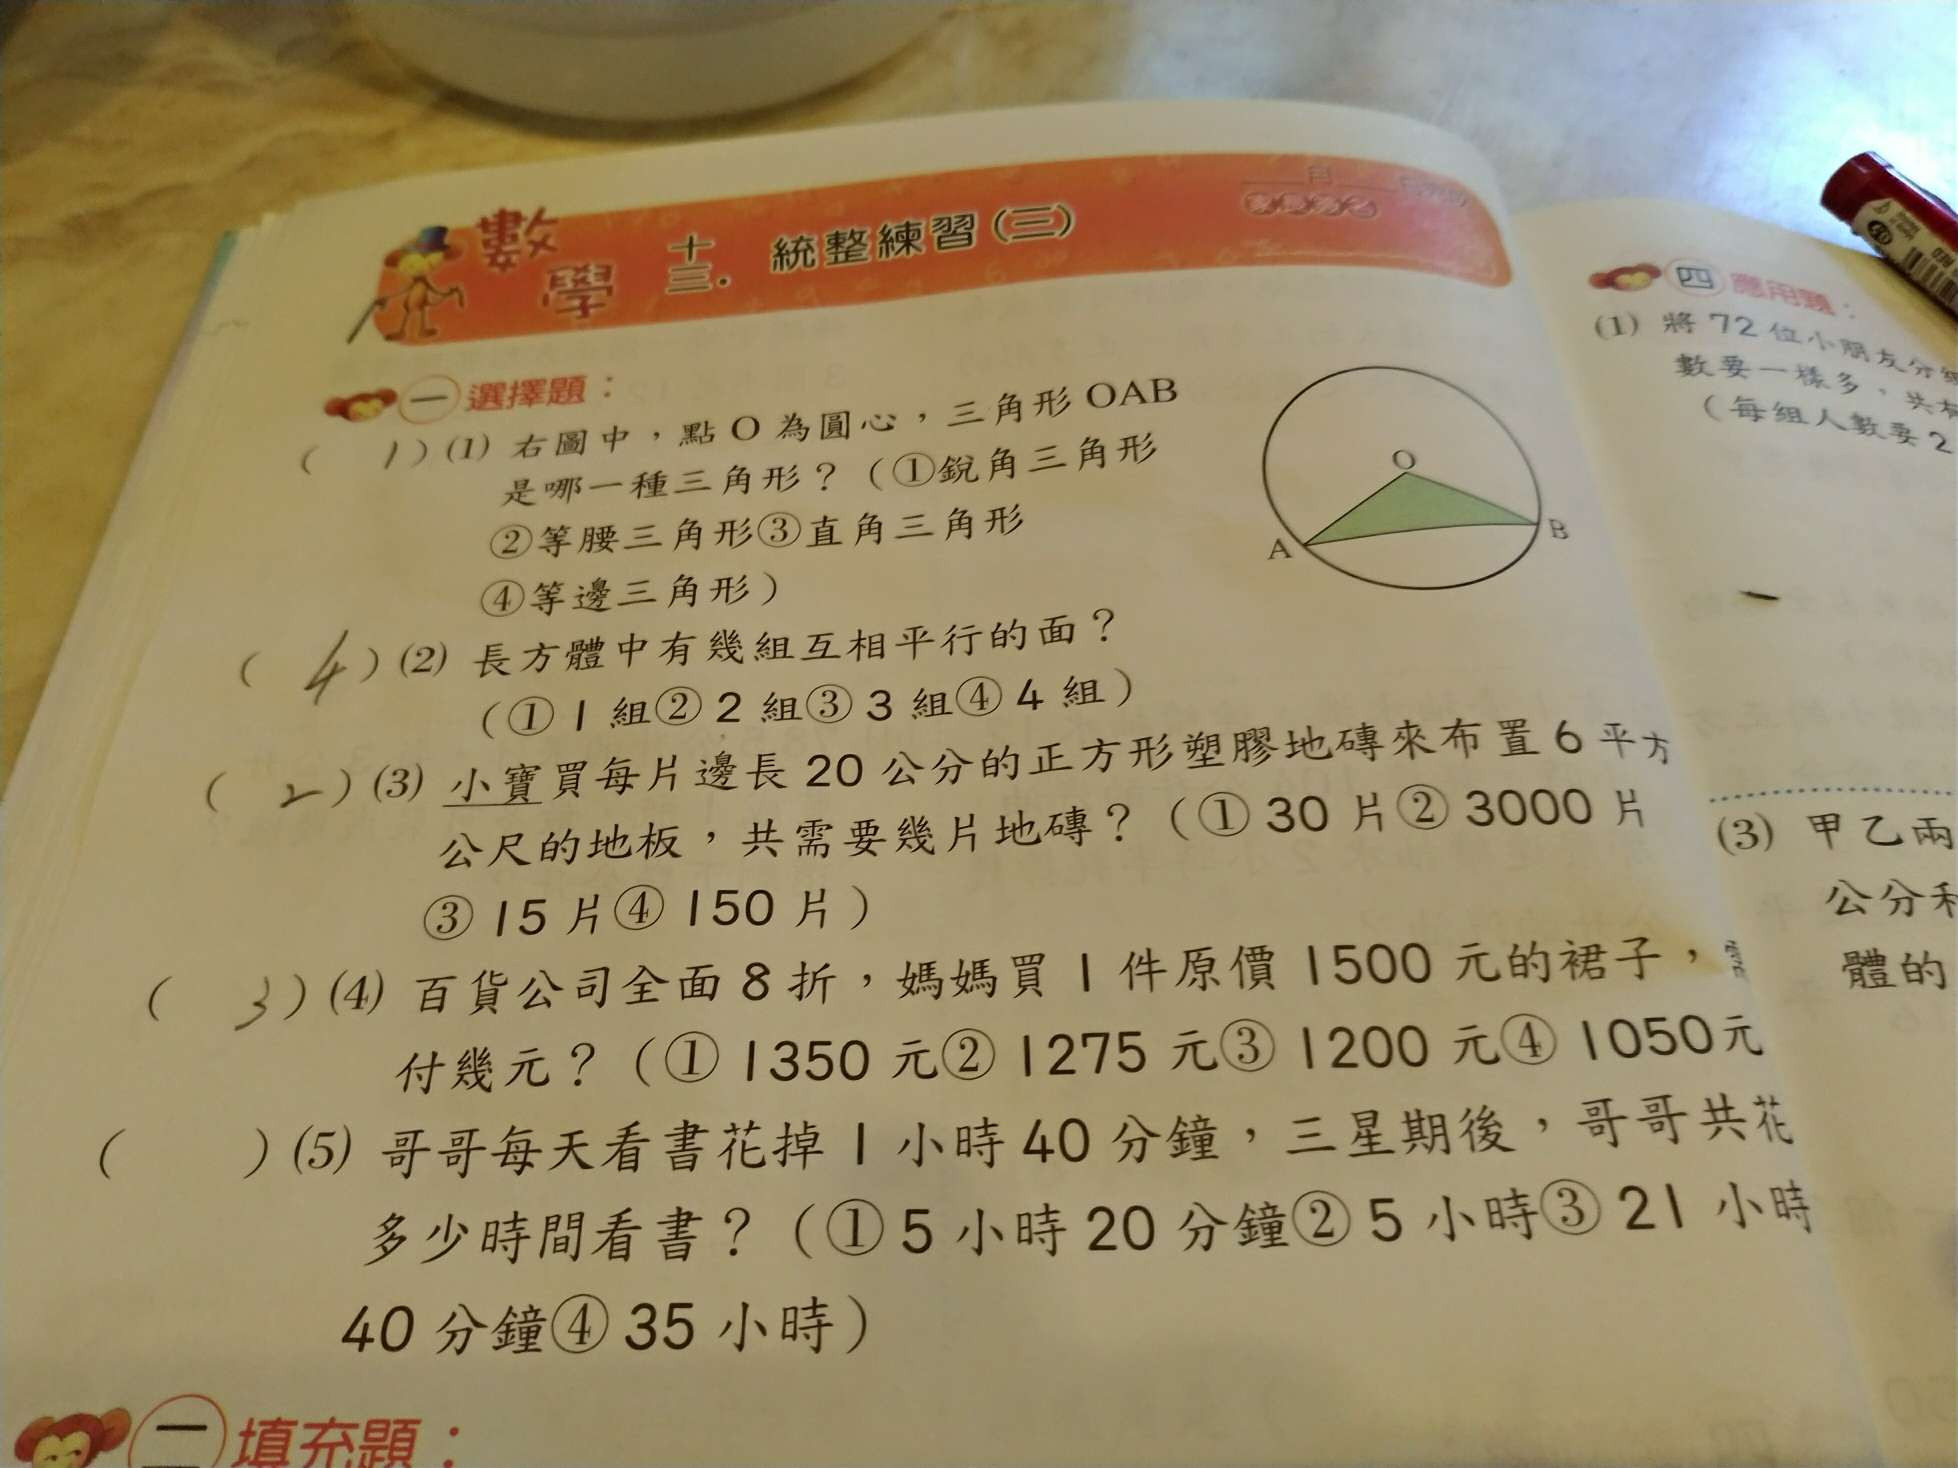 數學 十三. 統整練習(三)
月
一 選擇題：
( 1 ) (1) 右圖中，點 O 為圓心，三角形 OAB
是哪一種三角形？（①銳角三角形
②等腰三角形③直角三角形
④等邊三角形）
O
A
B
( 4 ) (2) 長方體中有幾組互相平行的面？
（① 1 組② 2 組③ 3 組④ 4 組）
( 2 ) (3) 小寶買每片邊長 20 公分的正方形塑膠地磚來布置 6 平方
公尺的地板，共需要幾片地磚？（① 30 片② 3000 片
③ 15 片④ 150 片）
( 3 ) (4) 百貨公司全面 8 折，媽媽買 1 件原價 1500 元的裙子，
付幾元？（① 1350 元② 1275 元③ 1200 元④ 1050元
( ) (5) 哥哥每天看書花掉 1 小時 40 分鐘，三星期後，哥哥共花
多少時間看書？（① 5 小時 20 分鐘② 5 小時③ 21 小時
40 分鐘④ 35 小時）
二 填充題：
四 應用題：
(1) 將 72 位小朋友分
數要一樣多，共有
（每組人數要 2
(3) 甲乙兩
公分和
體的